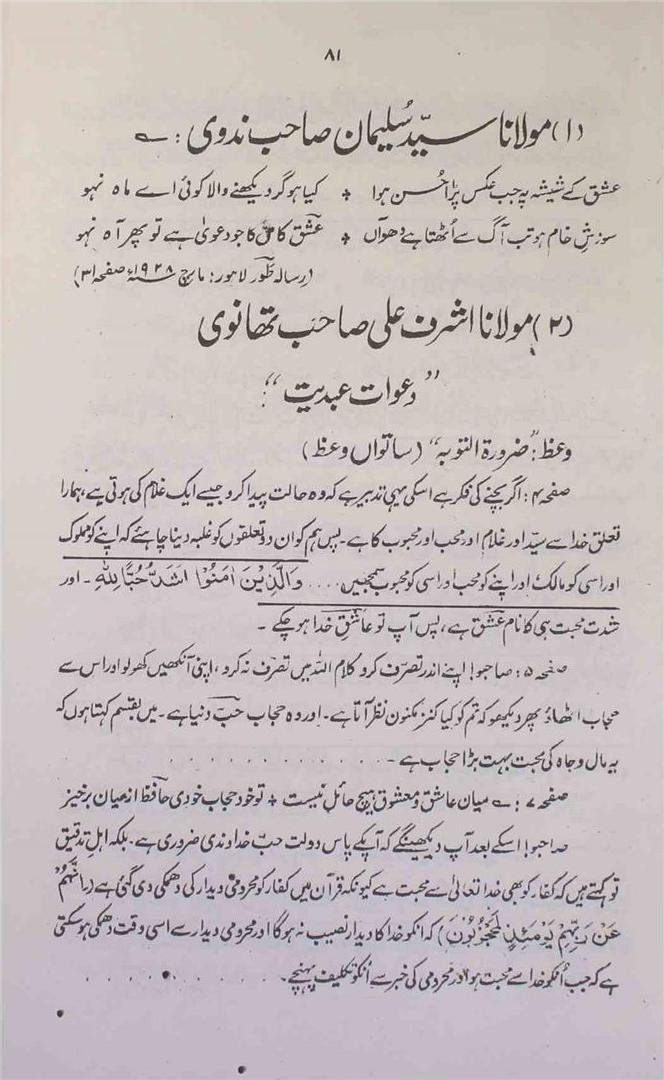 ۸۱
(۱) مولانا سیّد سُلیمان صاحب ندوی : ؎
عشق کے شیشہ پہ جب عکس پڑا حُسن ہوا ٭ کیا ہو گر دیکھنے والا کوئی اے ماہ نہو
سوزشِ خام ہو تب آگ سے اُٹھتا ہے دھوآں ٭ عشقِ کامل کا جو دعویٰ ہے تو پھر آہ نہو
(رسالہ طور لاہور: مارچ ۱۹۲۸ء صفحہ ۳۱)
(۲) مولانا اشرف علی صاحب تھانوی
”دعوات عبدیت“:
وعظ: ”ضرورۃ التوبہ“ (ساتواں وعظ)
صفحہ ۴: اگر بچنے کی فکر ہے اسکی یہی تدبیر ہے کہ وہ حالت پیدا کرو جیسے ایک غلام کی ہوتی ہے، ہمارا
تعلق خدا سے سیّد اور غلام اور محب اور محبوب کا ہے۔ پس ہم کو ان دو تعلقوں کو غلبہ دینا چاہئے کہ اپنے کو مملوک
اور اسی کو مالک اور اپنے کو محب اور اسی کو محبوب سمجھیں .... وَالَّذِیْنَ اٰمَنُوْا اَشَدُّ حُبًّا لِلّٰہِ۔ اور
شدت محبت ہی کا نام عشق ہے، پس آپ تو عاشقِ خدا ہو چکے ۔
صفحہ ۵: صاحبو! اپنے اندر تصرّف کرو کلام اللہ میں تصرّف نہ کرو، اپنی آنکھیں کھولو اور اس سے
حجاب اٹھادو پھر دیکھو کہ تم کو کیا کنز مکنون نظر آتا ہے۔ اور وہ حجاب حبِّ دنیا ہے۔ میں بقسم کہتا ہوں کہ
یہ مال و جاہ کی محبت بہت بڑا حجاب ہے ۔ . . . . . . . . . . . .
صفحہ ۷: ؎ میان عاشق و معشوق ہیچ حائل نیست ٭ تو خود حجاب خودی حافظ از میان برخیز
صاحبو! اسکے بعد آپ دیکھینگے کہ آپکے پاس دولت حبِّ خداوندی ضروری ہے۔ بلکہ اہلِ تدقیق
تو کہتے ہیں کہ کفار کو بھی خدا تعالیٰ سے محبت ہے کیونکہ قرآن میں کفار کو محرومی دیدار کی دھمکی دی گئی ہے (اِنَّھُمْ
عَنْ رَبِّھِمْ یَوْمَئِذٍ لَمَحْجُوْبُوْنَ) کہ انکو خدا کا دیدار نصیب نہ ہوگا اور محرومی دیدار سے اسی وقت دھمکی ہوسکتی
ہے کہ جب اُنکو خدا سے محبت ہو اور محرومی کی خبر سے اُنکو تکلیف پہنچے۔ . . . . . .